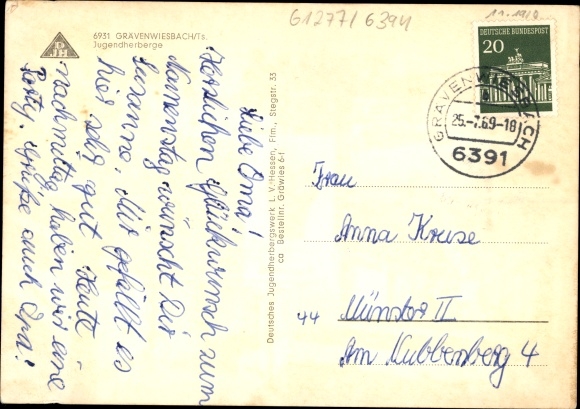 61277/6394
6931 GRAVENWIESBACH/Ts.
Jugendherberge
DJH
DEUTSCHE BUNDESPOST
20
GRÄVENWIESBACH
25.-7.69-18
6391
Liebe Oma!
Herzlichen Glückwunsch zum
Namenstag wünscht Dir
Susanne. Mir gefällt es
hier sehr gut. Heute
nachmittag haben wir eine
Party. Grüße auch Opa!
Deutsches Jugendherbergswerk L. V. Hessen, Ffm., Stegstr. 33
ca Bestellnr. Gräwies 6-1
Frau
Anna Kruse
44 Münster II
Am Nubbenberg 4